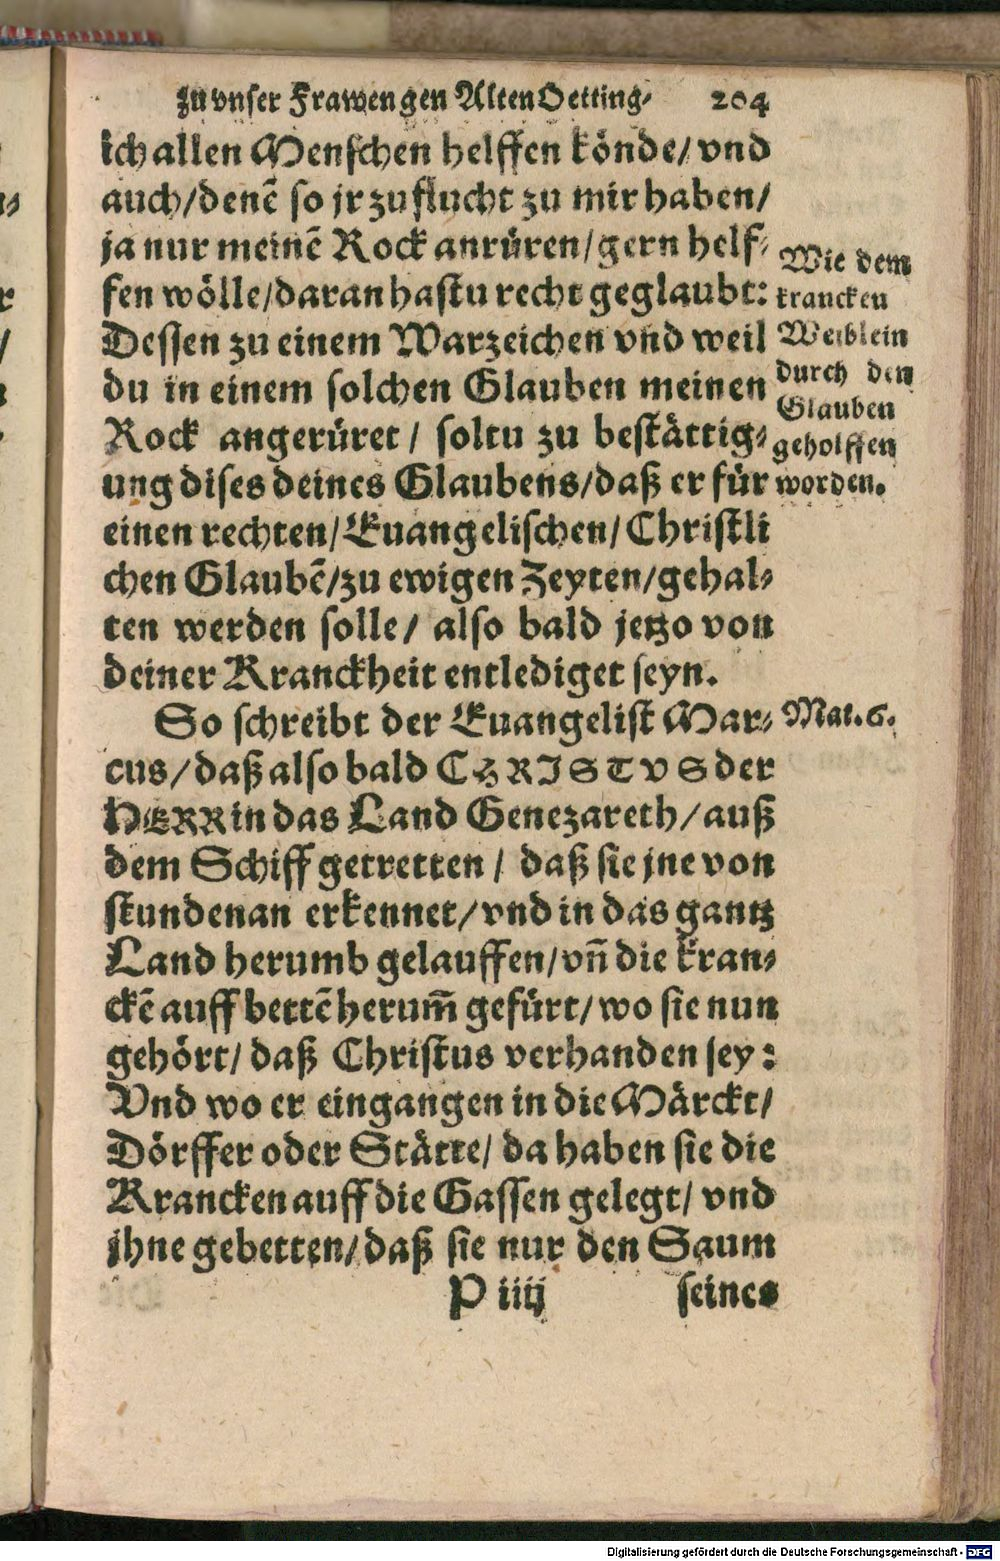 zu vnser Frawen gen Alten Oetting⸗ 204
ich allen Menschen helffen könde/ vnd
auch/ denē so jr zuflucht zu mir haben/
ja nur meinē Rock anrüren/ gern helf⸗
fen wölle/ daran hastu recht geglaubt:
Dessen zu einem Warzeichen vnd weil
du in einem solchen Glauben meinen
Rock angerüret/ soltu zu bestättig⸗
ung dises deines Glaubens/ daß er für
einen rechten/ Euangelischen/ Christli
chen Glaubē/ zu ewigen Zeyten/ gehal⸗
ten werden solle/ also bald jetzo von
deiner Kranckheit entlediget seyn.
Wie dem
krancken
Weiblein
durch den
Glauben
geholffen
worden.
So schreibt der Euangelist Mar⸗
cus/ daß also bald CHRISTVS der
HERR in das Land Genezareth/ auß
dem Schiff getretten/ daß sie jne von
stundenan erkennet/ vnd in das gantz
Land herumb gelauffen/ vn̄ die kran⸗
ckē auff bettē herum̄ gefürt/ wo sie nun
gehört/ daß Christus verhanden sey:
Vnd wo er eingangen in die Märckt/
Dörffer oder Stätte/ da haben sie die
Krancken auff die Gassen gelegt/ vnd
jhne gebetten/ daß sie nur den Saum
Mat. 6.
P iiij seines
Digitalisierung gefördert durch die Deutsche Forschungsgemeinschaft - DFG